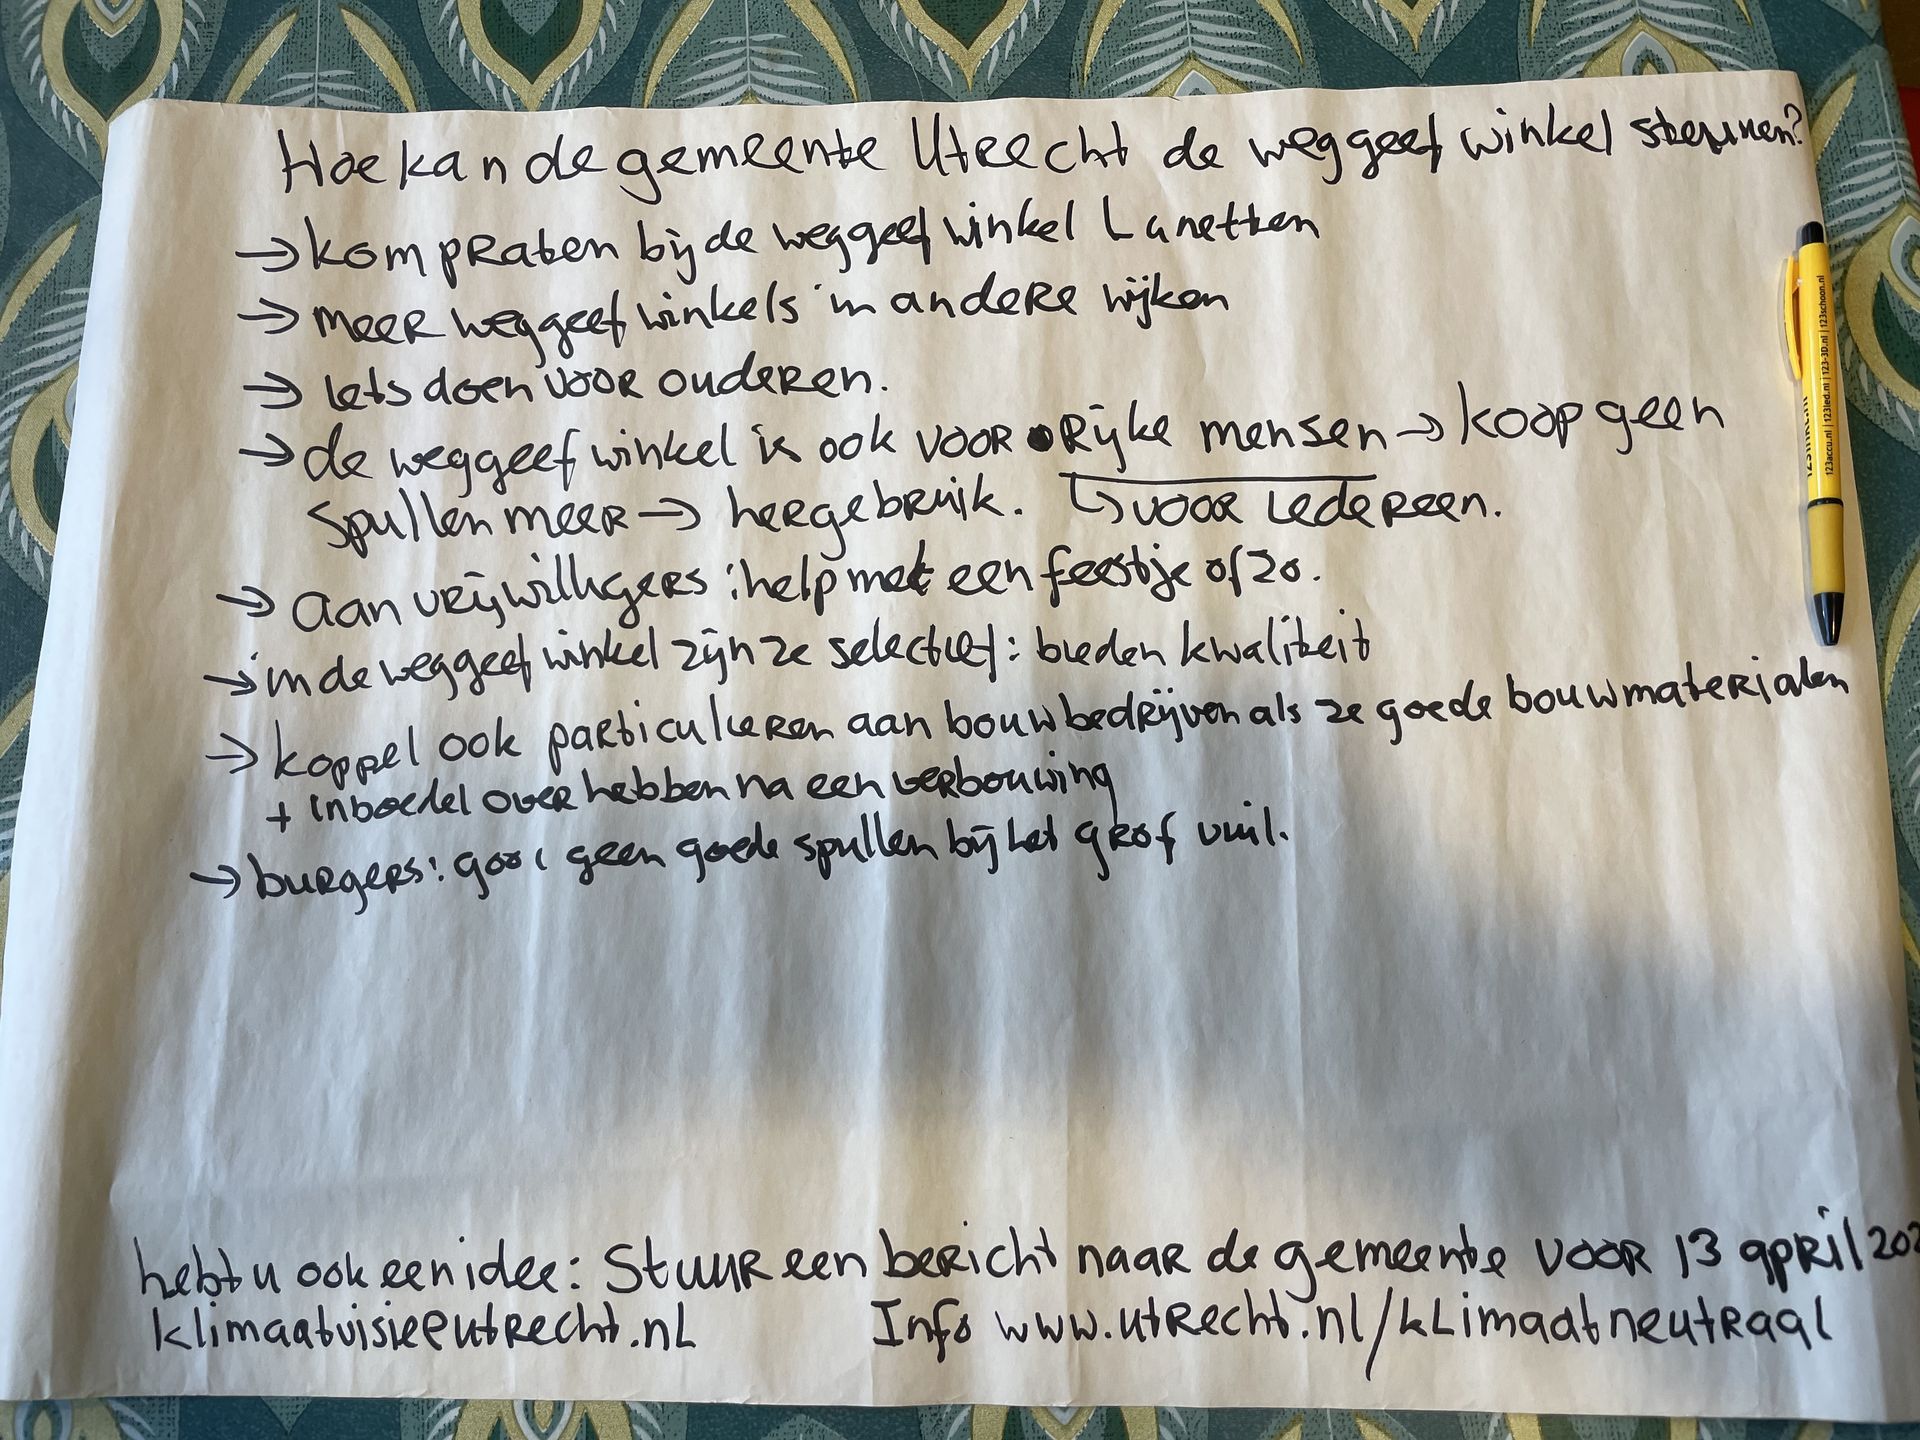 Hoe kan de gemeente Utrecht de weggeef winkel steunen?
→ kom praten bij de weggeef winkel Lunetten
→ meer weggeef winkels in andere wijken
→ iets doen voor ouderen.
→ de weggeef winkel is ook voor Rijke mensen → koop geen
spullen meer → hergebruik. ↳ voor iedereen.
→ aan vrijwilligers : help met een feestje of zo.
→ in de weggeef winkel zijn ze selectief: bieden kwaliteit
→ koppel ook particulieren aan bouwbedrijven als ze goede bouwmaterialen
+ inboedel over hebben na een verbouwing
→ burgers: gooi geen goede spullen bij het grof vuil.
hebt u ook een idee: Stuur een bericht naar de gemeente voor 13 april 202
klimaatvisie@utrecht.nl Info www.utrecht.nl/klimaatneutraal
123accu.nl | 123led.nl | 123-3D.nl | 123schoon.nl